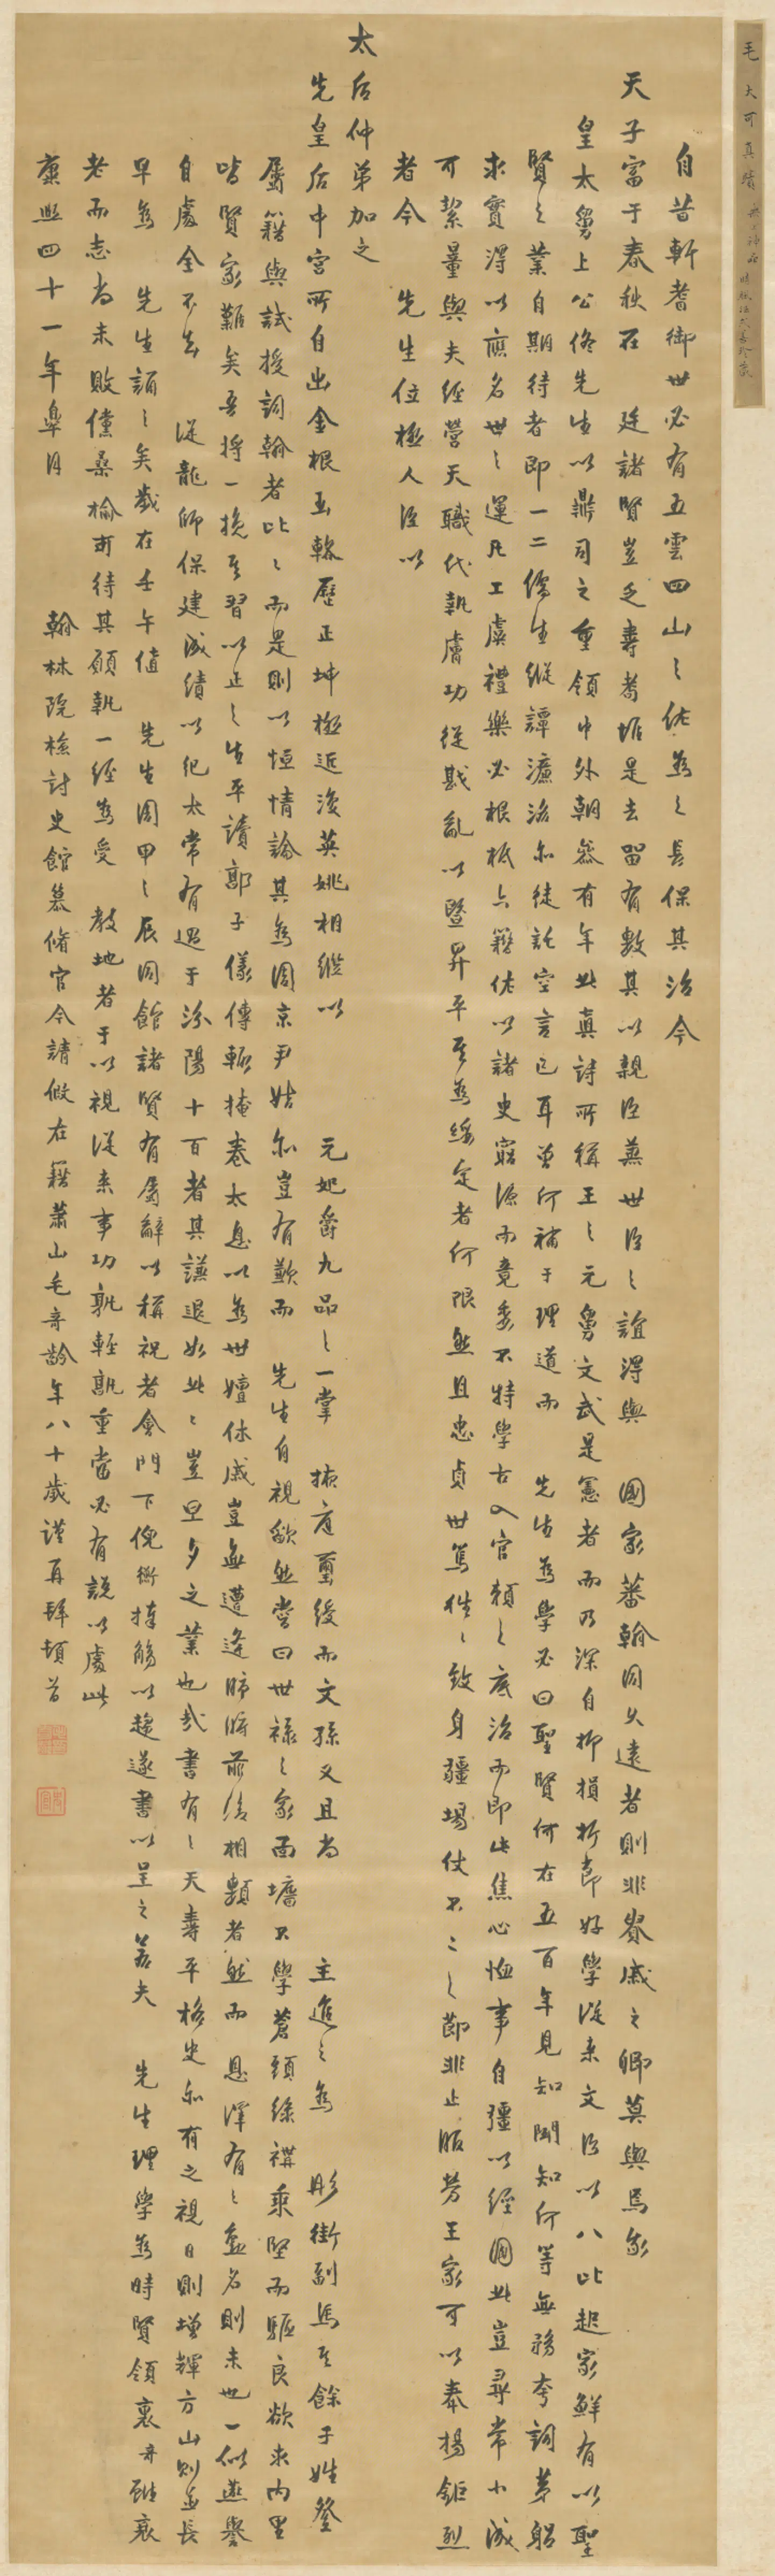 自昔軒耆御世必有五雲四山之佐為之長保其治今
天子富于春秋在廷諸賢豈乏壽耇抵是去留有數其以親臣兼世臣之誼得與國家蕃翰同久遠者則非貴戚之卿莫與焉我
皇太舅上公佟先生以鼎司之重領中外朝祭有年此真詩所稱王之元舅文武是憲者而乃深自抑損折節好學從來文臣以八比起家鮮有以聖
賢之業自期待者即一二儒生縱譚濂洛亦徒託空言已耳曾何補于理道而先生為學必曰聖賢何在五百年見知聞知何等無務夸詞茅躬
求實得以應名世之運凡工虞禮樂必根柢六籍佐以諸史窮源而竟委不特學古入官賴之底治而即此焦心恤事自彊以經國此豈尋常小識
可絜量與夫經營天職代執膚功從戡亂以暨昇平其為綏定者何限然且忠貞世篤往往致身疆場仗不二之節非止服勞王家可以奉揚鉅烈
者今先生位極人臣以
太后仲弟加之
先皇后中宮所自出金根玉輅歷正坤極近復英姚相繼以元妃爵九品之一掌掖庭璽綬而文孫又且尚主進之為彤街副馬其餘子姓登
屬籍與試授詞翰者比比而是則以恒情論其為周京尹姞亦豈有歉而先生自視歘然嘗曰世祿之家面墻不學蒼頭綠褠乘堅而驅良欲求內里
皆賢家難矣吾將一挽其習以正之生平讀郭子儀傳輒掩卷太息以為世嬗休戚豈無遭逢肺腑前後相類者然而恩澤有之盛名則未也一似燕譽
自處全不去從龍師保建成績以紀太常有過于汾陽十百者其謙退如此此豈旦夕之業也哉書有之天壽平格史亦有之視日則增輝方山則並長
早為先生誦之矣歲在壬午值先生周甲之辰同館諸賢有屬辭以稱祝者會門下倪衡捧觴以趨遂書以呈之若夫先生理學為時賢領袠奇齡雖衰
老而志尚未敗儻桑榆可待其願執一經為受教地者于以視從來事功孰輕孰重當必有說以處此
康熙四十一年皋月翰林院檢討史館纂修官今請假在籍蕭山毛奇齡年八十歲謹再拜頓首
毛大可真蹟